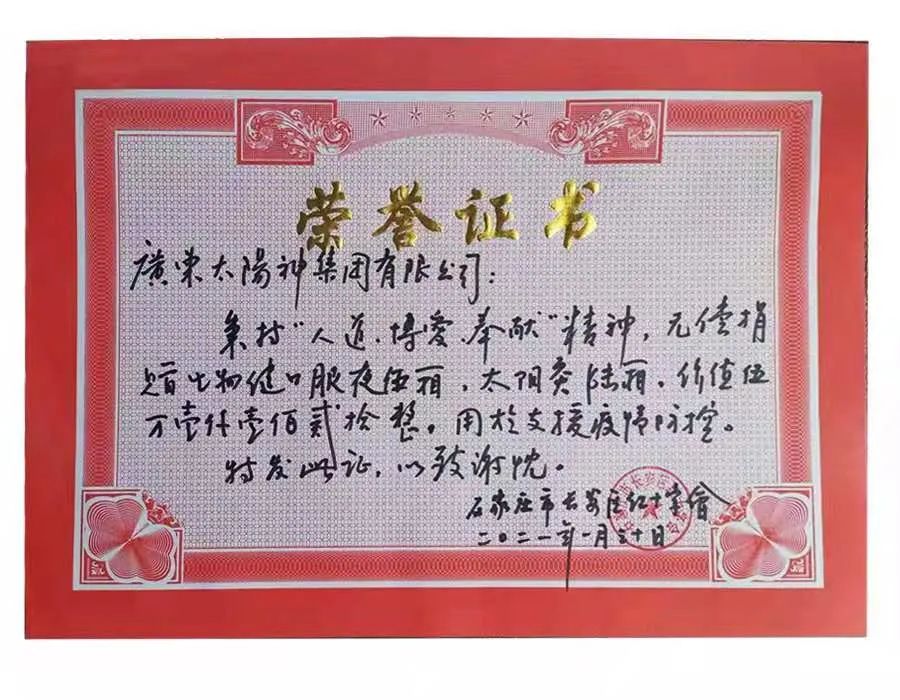 荣誉证书
廣东太陽神集团有限公司：
秉持“人道、博愛、奉献”精神，无偿捐
赠生物健口服液伍箱，太阳灸陆箱。价值伍
万壹仟壹佰贰拾整。用於支援疫情防控。
特发此证，以致谢忱。
石家庄市长安区红十字會
二〇二一年一月三十日